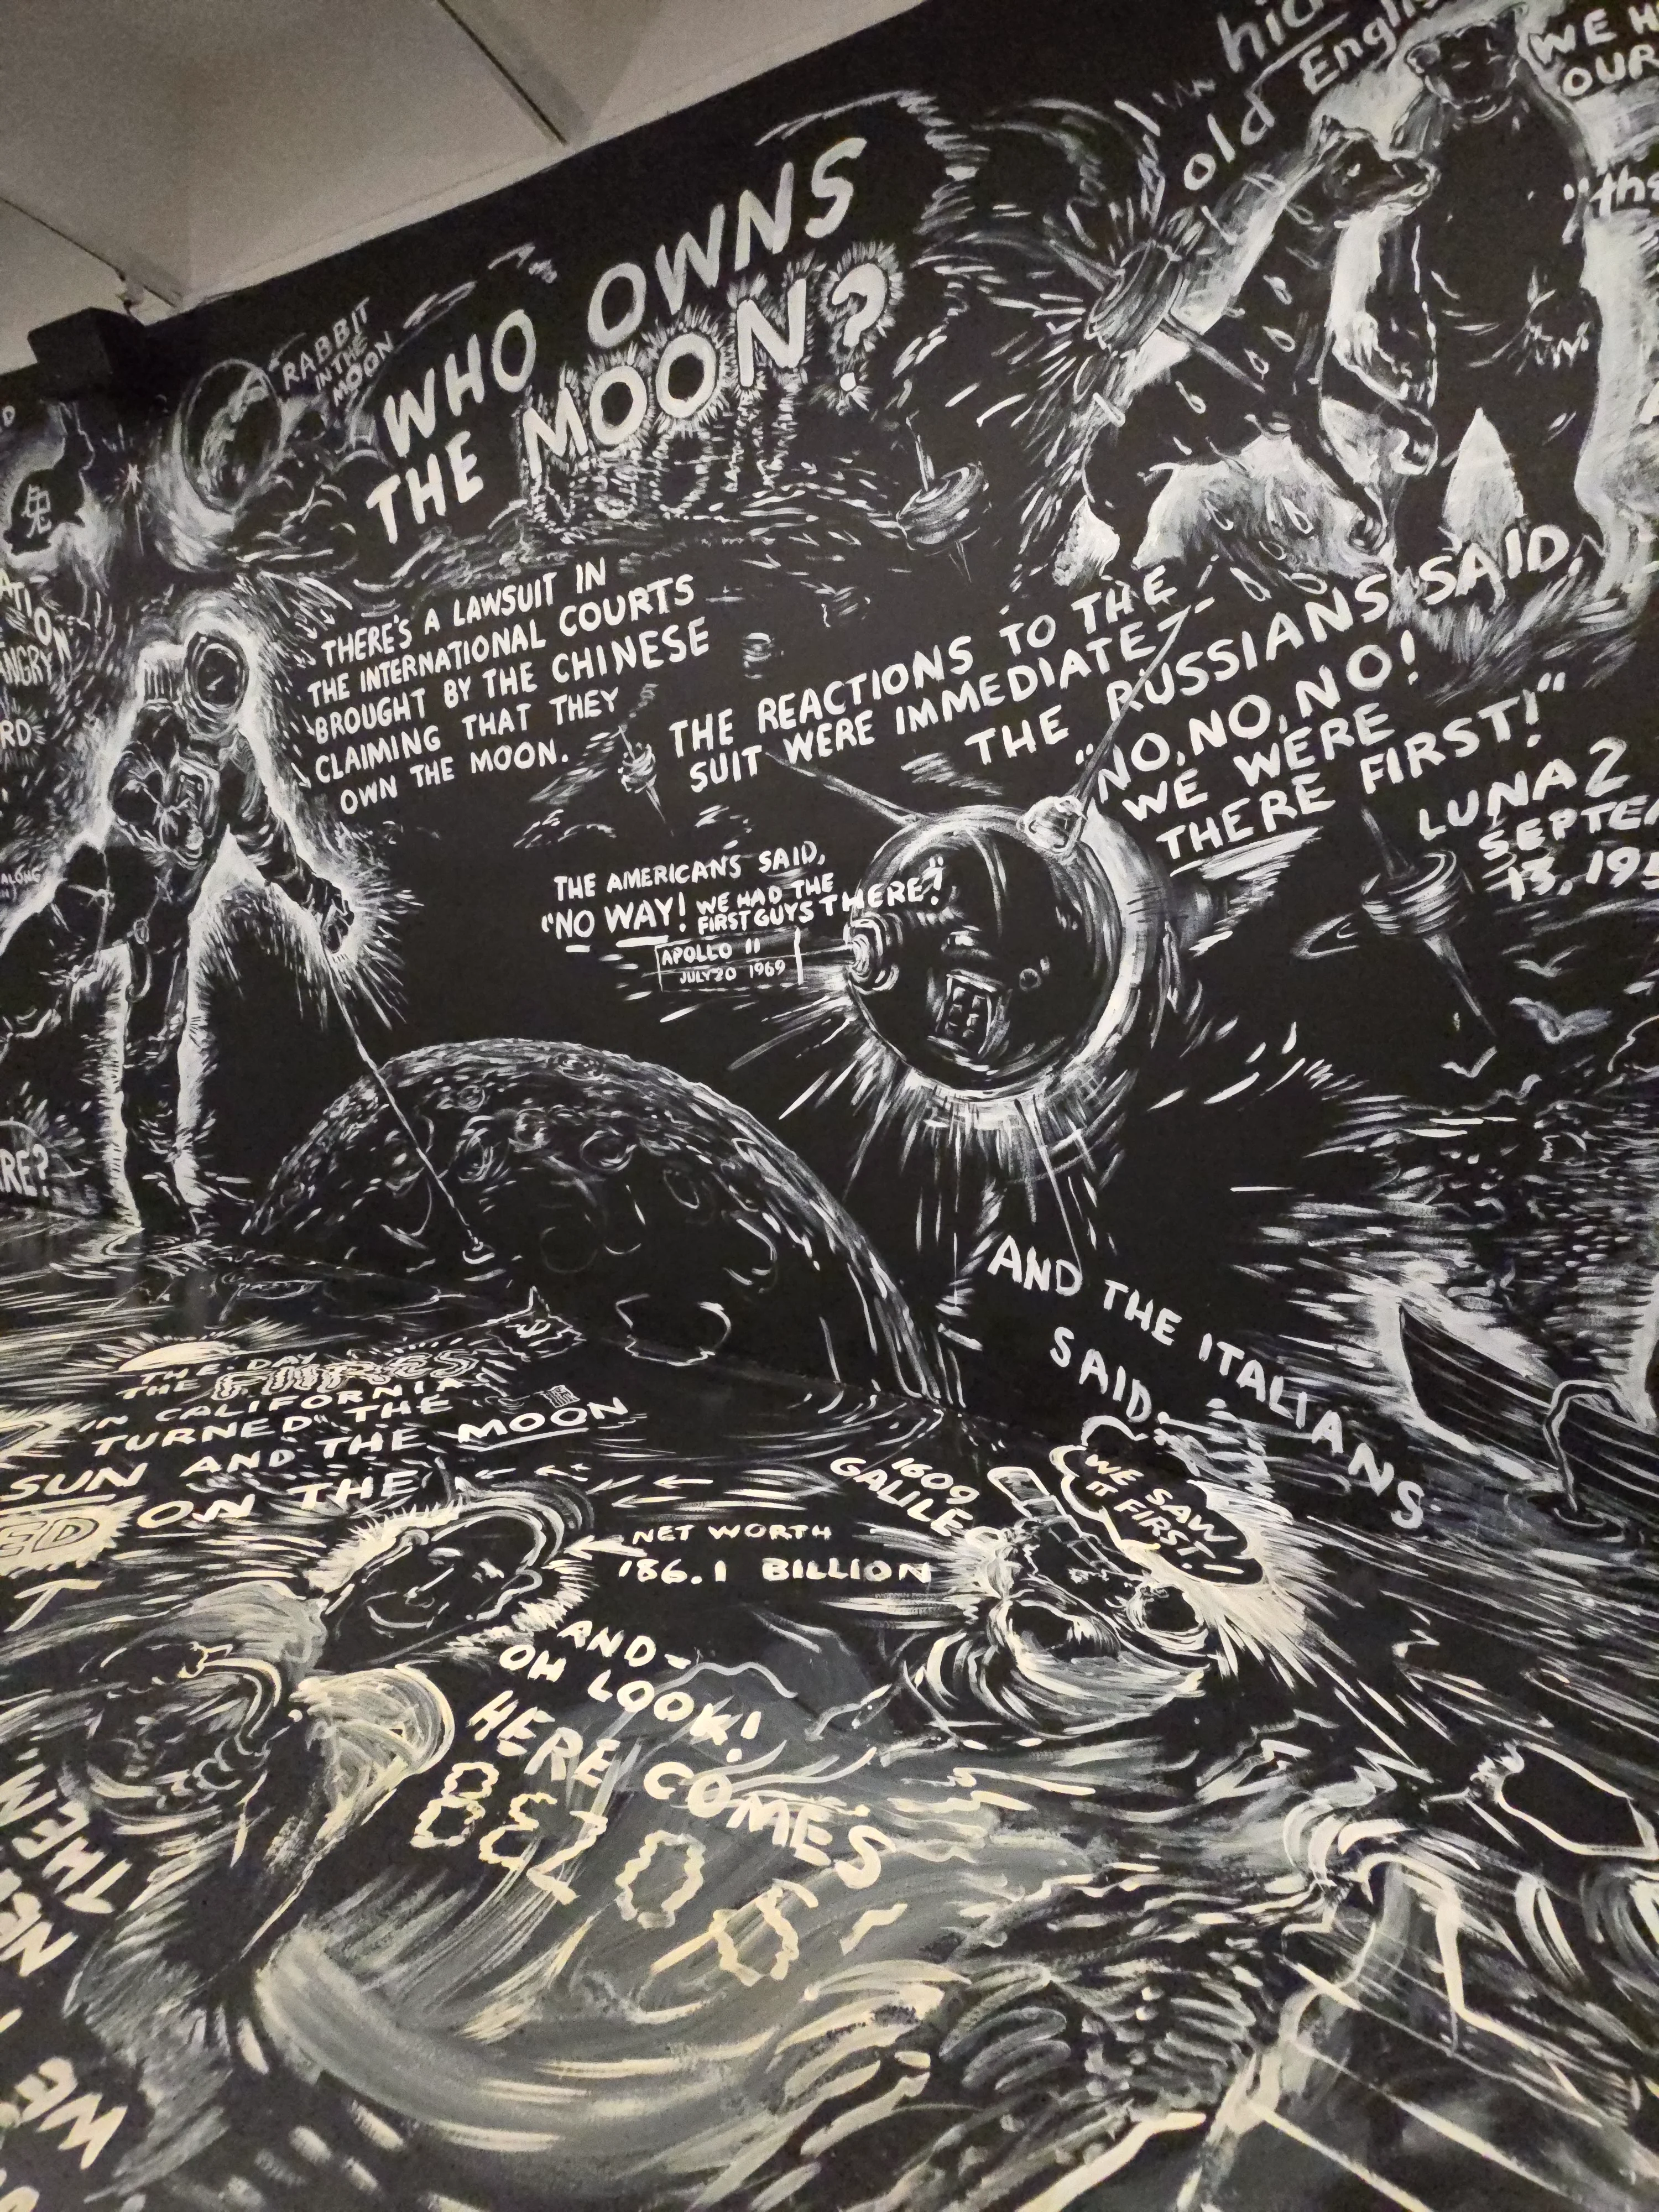 hid
old English
WE H
OUR
"the
WHO OWNS
THE MOON?
RABBIT
IN THE
MOON
兔
ANGRY
THERE'S A LAWSUIT IN
THE INTERNATIONAL COURTS
BROUGHT BY THE CHINESE
CLAIMING THAT THEY
OWN THE MOON.
THE REACTIONS TO THE
SUIT WERE IMMEDIATE-
THE RUSSIANS SAID,
"NO, NO, NO!
WE WERE
THERE FIRST!"
LUNA 2
SEPTE
13, 195
THE AMERICANS SAID,
"NO WAY! WE HAD THE
FIRST GUYS THERE!"
APOLLO 11
JULY 20 1969
ALONG
RE?
AND THE ITALIANS
SAID:
WE SAW
IT FIRST!
1609
GALILEO
THE DAY
THE FIRES
IN CALIFORNIA
TURNED THE
SUN AND THE MOON
ON THE
ED
NET WORTH
186.1 BILLION
AND-
OH LOOK!
HERE COMES
BEZOS
THEM
WE